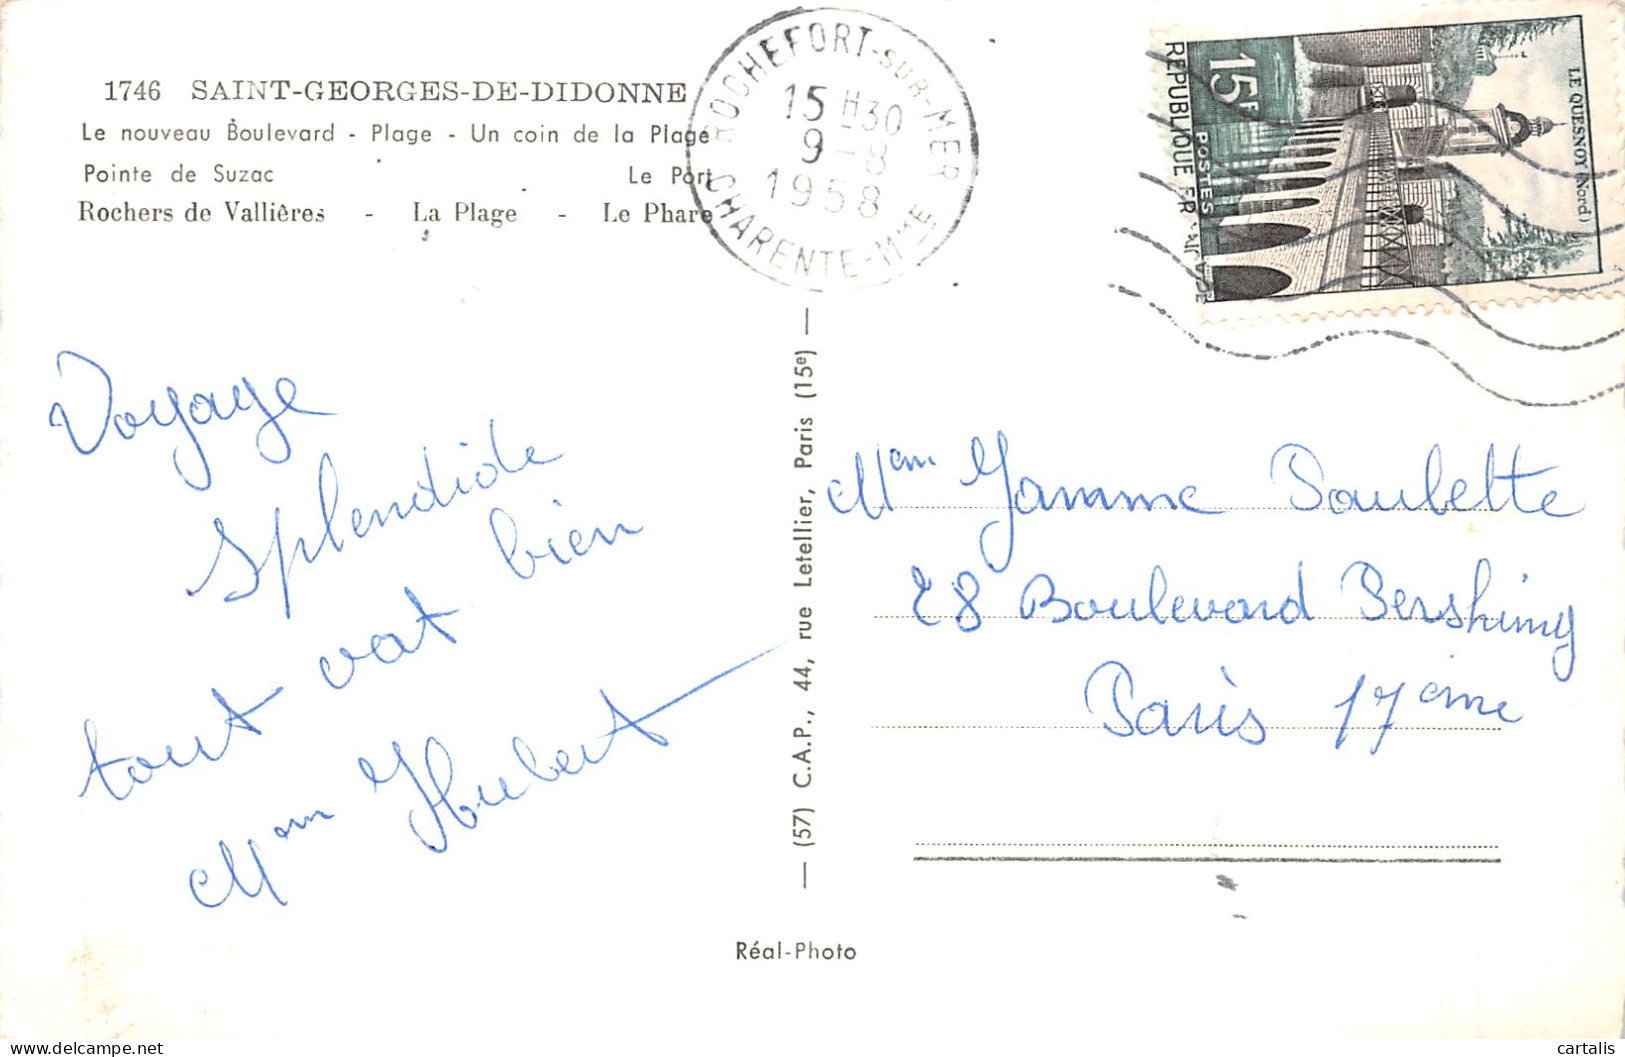 1746 SAINT-GEORGES-DE-DIDONNE
Le nouveau Boulevard - Plage - Un coin de la Plage
Pointe de Suzac Le Port
Rochers de Vallières - La Plage - Le Phare
ROCHEFORT-SUR-MER
15 H 30
9 - 8
1958
CHARENTE-MME
15F
POSTES
REPUBLIQUE FRANÇAISE
LE QUESNOY (Nord)
Voyage
Splendide
tout vat bien
Mem Hubert
(57) C.A.P., 44, rue Letellier, Paris (15e)
Mem Jamme Paulette
28 Boulevard Pershing
Paris 17ème
Réal-Photo
cartalis